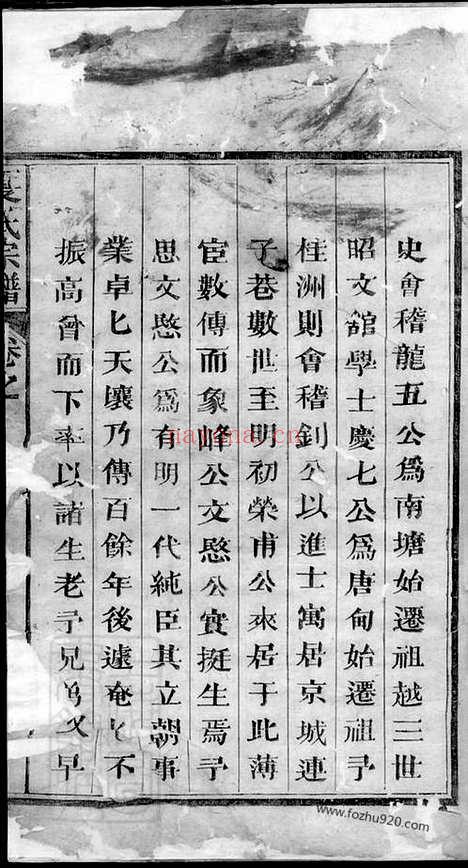 史會稽龍五公爲南塘始遷祖越三世
昭文舘學士慶七公爲唐甸始遷祖予
桂洲則會稽釗公以進士寓居京城連
子巷數世至明初榮甫公來居于此薄
宦數傳而象峰公文愍公實挺生焉予
思文愍公爲有明一代純臣其立朝事
業卓匕天壤乃傳百餘年後遽奄匕不
振高曾而下率以諸生老予兄爲父早
氏宗譜
nayona.cn
www.fozhu920.com